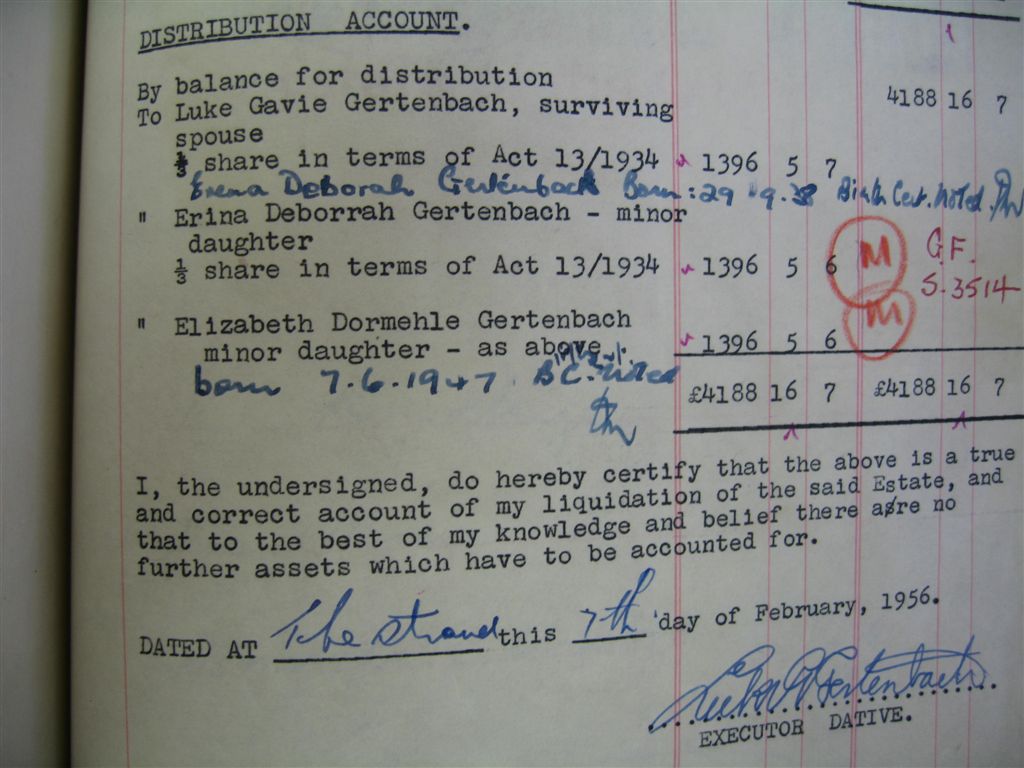 DISTRIBUTION ACCOUNT.
By balance for distribution 4188 16 7
To Luke Gavie Gertenbach, surviving
spouse
⅓ share in terms of Act 13/1934 1396 5 7
Erena Deborah Gertenbach Born: 29.9.38 Birth Cert. Noted.
" Erina Deborrah Gertenbach - minor
daughter M G.F.
⅓ share in terms of Act 13/1934 1396 5 6 S.3514
" Elizabeth Dormehle Gertenbach M
minor daughter - as above 1396 5 6
born 7.6.1947 B C. Noted
£4188 16 7 £4188 16 7
I, the undersigned, do hereby certify that the above is a true
and correct account of my liquidation of the said Estate, and
that to the best of my knowledge and belief there are no
further assets which have to be accounted for.
DATED AT The Strand this 7th day of February, 1956.
Luke G Gertenbach
EXECUTOR DATIVE.